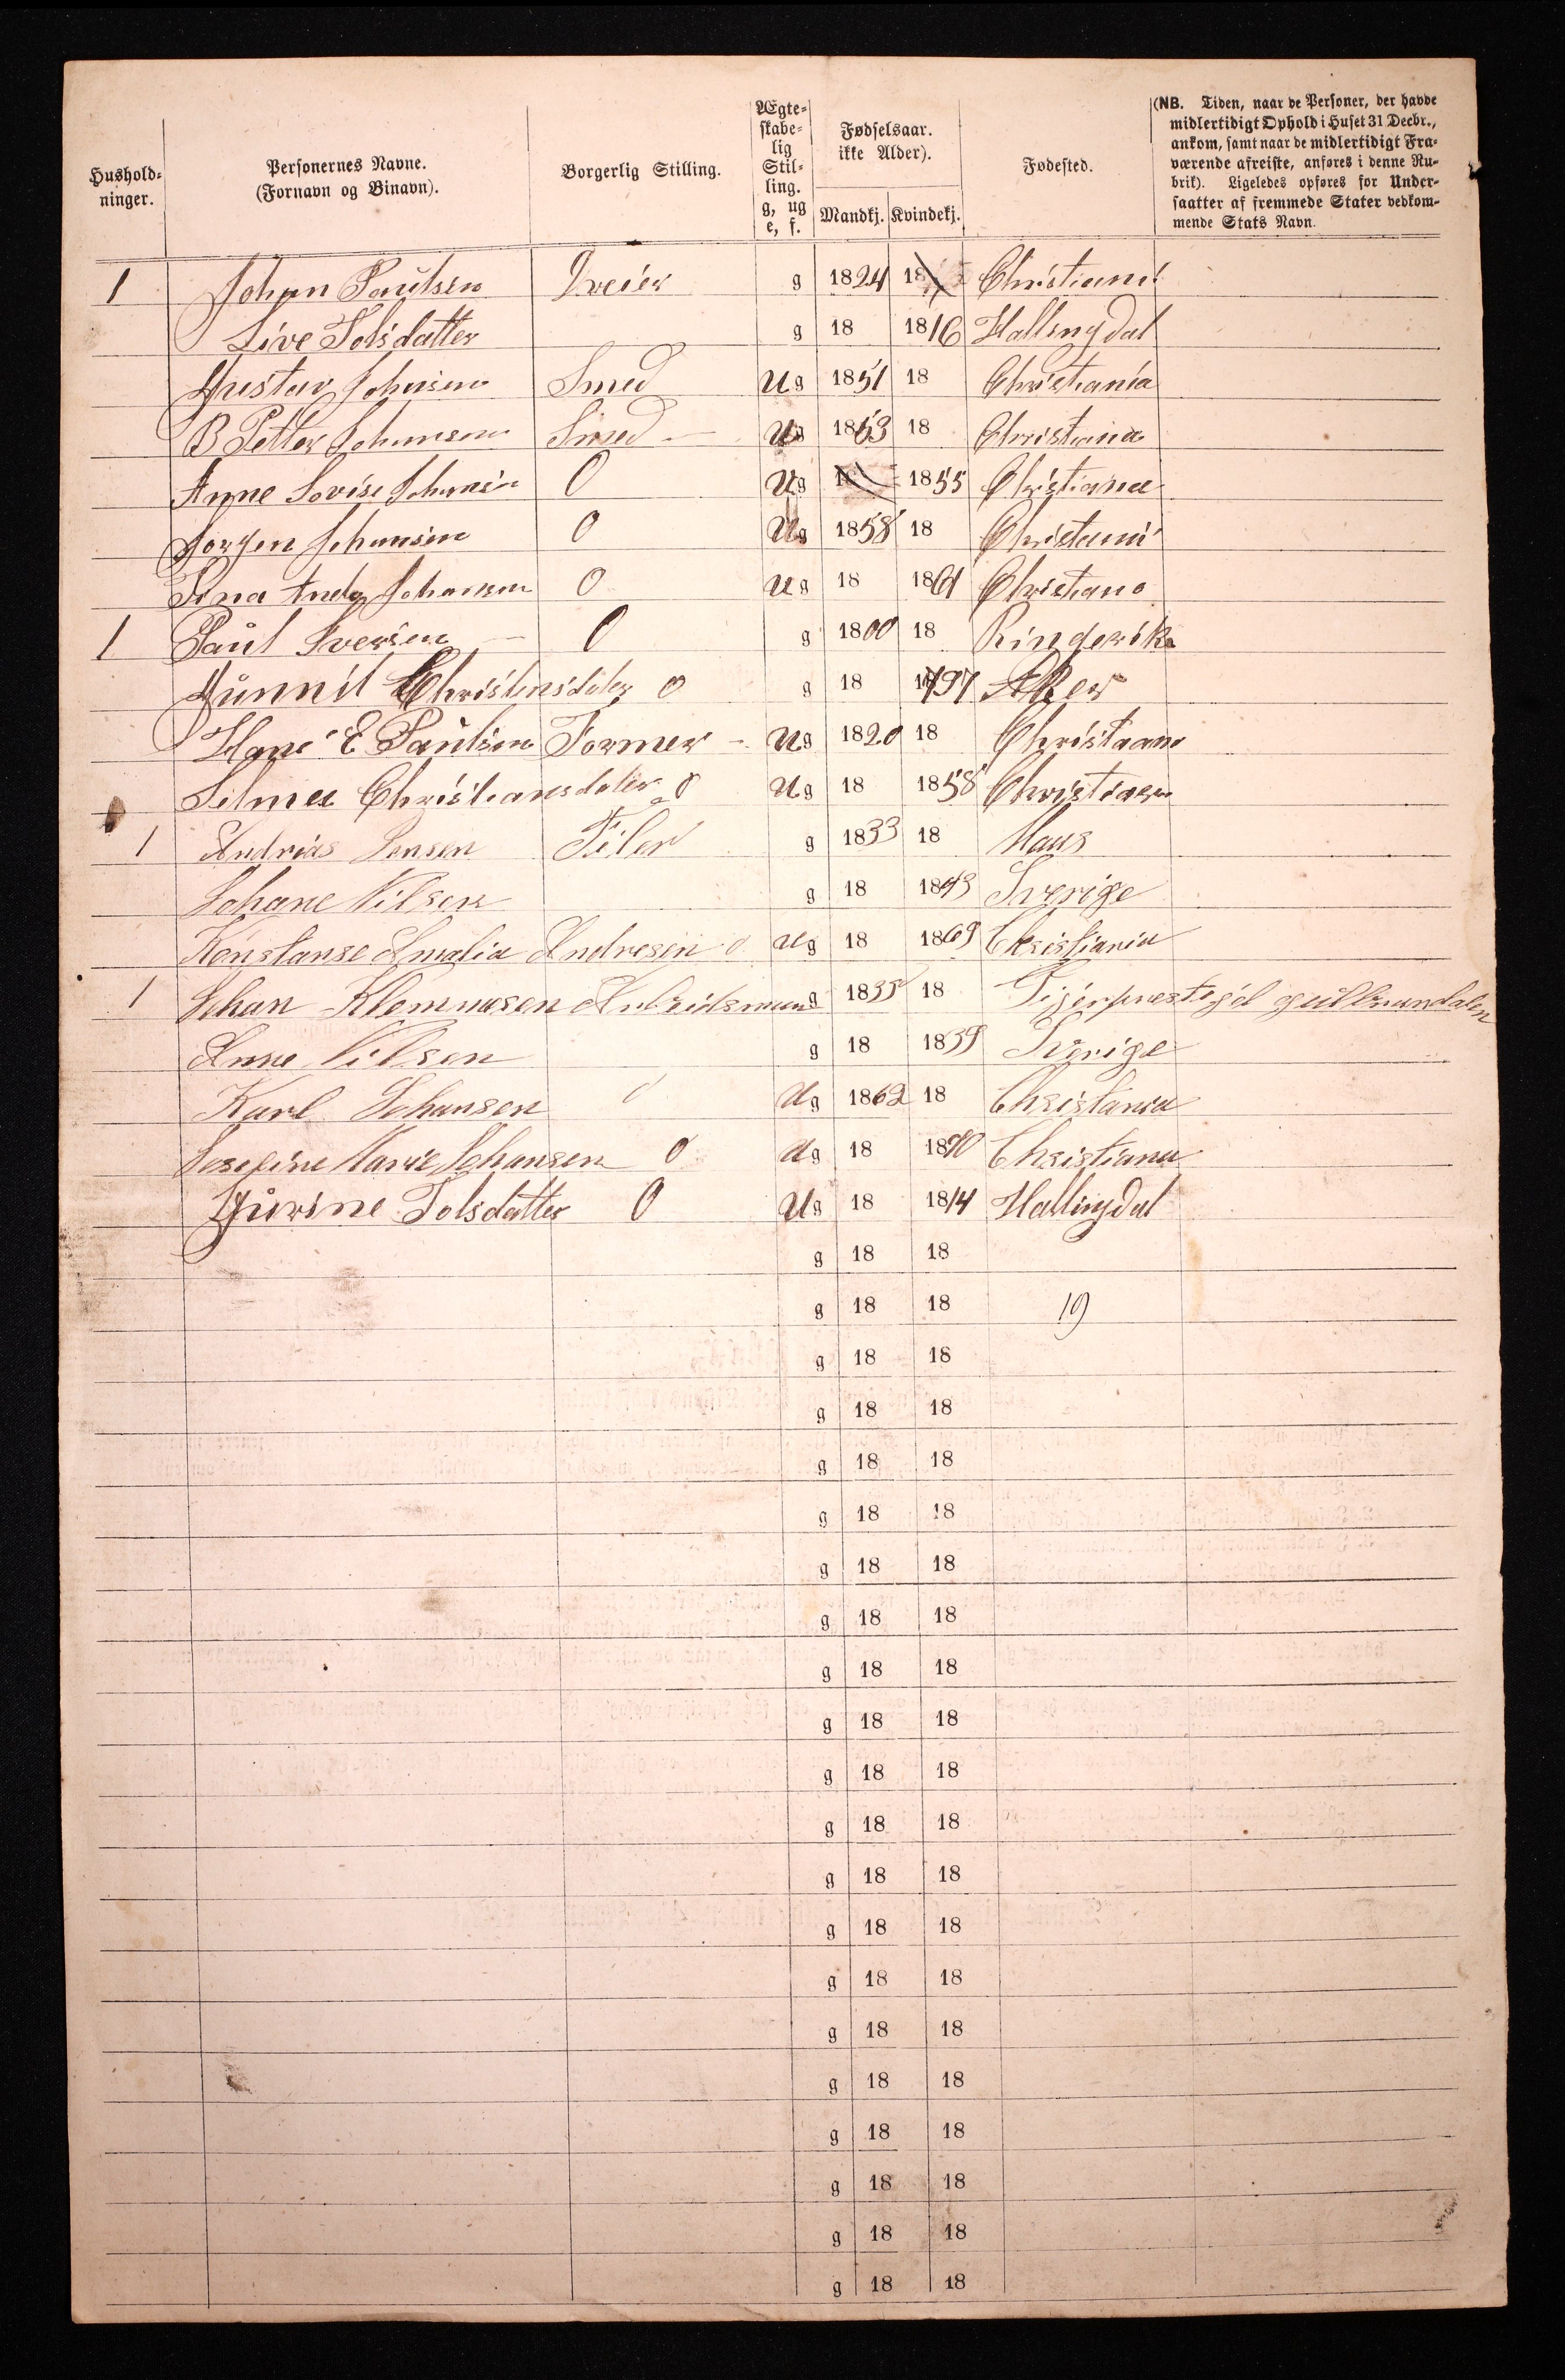 Hushold-
ninger.
Personernes Navne.
(Fornavn og Binavn).
Borgerlig Stilling.
Ægte-
skabe-
lig
Stil-
ling.
g, ug
e, f.
Fødselsaar.
ikke Alder).
Mandkj. Kvindekj.
Fødested.
(NB. Tiden, naar de Personer, der havde
midlertidigt Ophold i Huset 31 Decbr.,
ankom, samt naar de midlertidigt Fra-
værende afreiste, anføres i denne Ru-
brik). Ligeledes opføres for Under-
saatter af fremmede Stater vedkom-
mende Stats Navn.
1 Johan Paulsen Dreier g 1824 18 Christiani
Live Tolsdatter g 18 1816 Hallingdal
Gustav Johnsen Smed Ug 1851 18 Christiania
B Petter Johansen Smed Ug 1853 18 Christiania
Anne Lovise Johansen O Ug 18 1855 Christiana
Jorgen Johansen O Ug 1858 18 Christiani
Johansen O Ug 18 1861 Christiana
1 Paul Iversen O g 1800 18 Ringerike
Gunnil Christensdater O g 18 1797 Aker
Hans E Paulsen Former Ug 1820 18 Christiana
Christiansdater O Ug 18 1858 Christiana
1 Andreas Jensen Filer g 1833 18
Johane Nilsen g 18 1843 Sverige
Konstanse Amalia Andresen O Ug 18 1869 Christiania
1 Johan Klemmesen Arbeidsmand g 1835 18 gulbrandalen
Anne Nilsen g 18 1839 Sverige
Karl Johansen O Ug 1862 18 Christiania
Josefine Marie Johansen O Ug 18 1870 Christiana
Gurine Tolsdatter O Ug 18 1814 Hallingdal
g 18 18
g 18 18 19
g 18 18
g 18 18
g 18 18
g 18 18
g 18 18
g 18 18
g 18 18
g 18 18
g 18 18
g 18 18
g 18 18
g 18 18
g 18 18
g 18 18
g 18 18
g 18 18
g 18 18
g 18 18
g 18 18